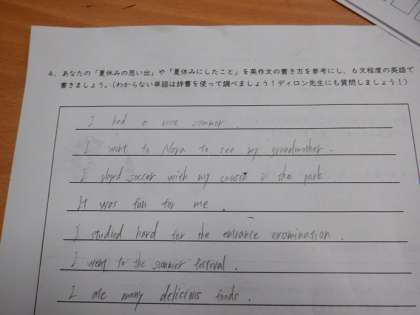 4. あなたの「夏休みの思い出」や「夏休みにしたこと」を英作文の書き方を参考にし、6文程度の英語で
書きましょう。(わからない単語は辞書を使って調べましょう！ディロン先生にも質問しましょう！)
I had a nice summer
I went to Nara to see my grandmother.
I played soccer with my cousin in the park
It was fun for me.
I studied hard for the entrance examination.
I went to the summer festival.
I ate many delicious foods.